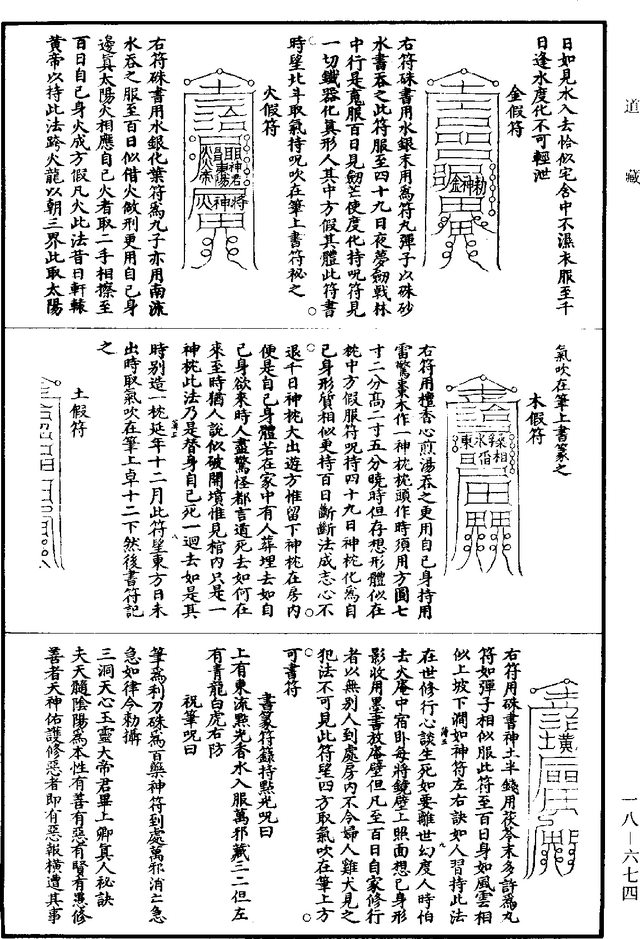 道藏
日如見水入去恰似宅舍中不濕衣服至千
日逢水度化不可輕泄
金假符
右符硃書用水銀末用為符丸彈子以硃砂
水書吞之此符服至四十九日夜夢劒戟林
中行是寬服百日見劒芒使度化持呪符見
一切鐵器化眞形人其中方假其體此符書
時望北斗取氣持呪吹在筆上書符秘之
火假符
右符硃書用水銀化葉符為丸子亦用南流
水吞之服至百日似借火倣刑更用自己身
邊眞太陽火相應自己火者取二手相擦至
百日自己身火成方假凡火此法昔日軒轅
黃帝以持此法跨火龍以朝三界此取太陽
氣吹在筆上書篆之
木假符
右符用檀香心煎湯吞之更用自己身持用
雷驚棗木作一神枕枕頭作時須用方圓七
寸二分高二寸五分曉時但存想形體似在
枕中方假服符呪持四十九日神枕化為自
己身形質相似更持百日斷斷法成志心不
退千日神枕大出遊方惟留下神枕在房內
便是自己身體若在家中有人葬埋去如自
己身欲來時人盡驚怪都言道死去如何在
來至時猶人說似破開墳惟見棺內只是一
神枕此法乃是替身自己死一迴去如是其
時別造一枕延年十二月此符望東方日未
出時取氣吹在筆上卓十二下然後書符記
之
土假符
右符用硃書神土半錢用茯苓末多許為丸
符如彈子相似服此符至百日身如風雲相
似上坡下澗如神符左右訣如人習持此法
在世修行心談生死如要離世幻度人時怕
去火庵中宿卧每將鏡壁上照面想己身形
影收用墨書放庵壁但凡至百日自家修行
者以無別人到處房內不令婦人雞犬見之
犯法不可見此符望四方取氣吹在筆上方
可書符
書篆符籙持點光呪曰
上有東流點光香水入服萬邪藏三二但左
有青龍白虎右防
祝筆呪曰
筆為利刀硃為百藥神符到處萬邪消亡急
急如律令勅攝
三洞天心玉靈大帝君畢上卿眞人祕訣
夫天髓陰陽為本性有善有惡有賢有愚修
善者天神佑護修惡者即有惡報橫遭其事
一八—六七四